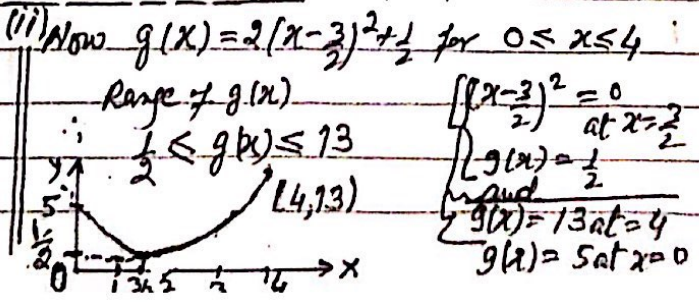 (ii) Now g(x) = 2(x-3/2)²+1/2 for 0 ≤ x ≤ 4
Range of g(x)
∴ 1/2 ≤ g(x) ≤ 13
(x-3/2)² = 0
at x=3/2
g(x) = 1/2
and
g(x) = 13 at = 4
g(x) = 5 at x=0
y
5
(4,13)
1/2
0 1 3/2 2 3 4 x